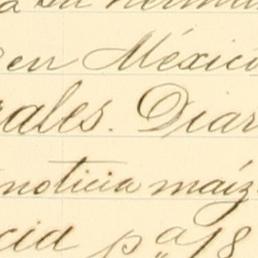 a su herma
en México
rales. Diar
noticia maíz
cia pª 18